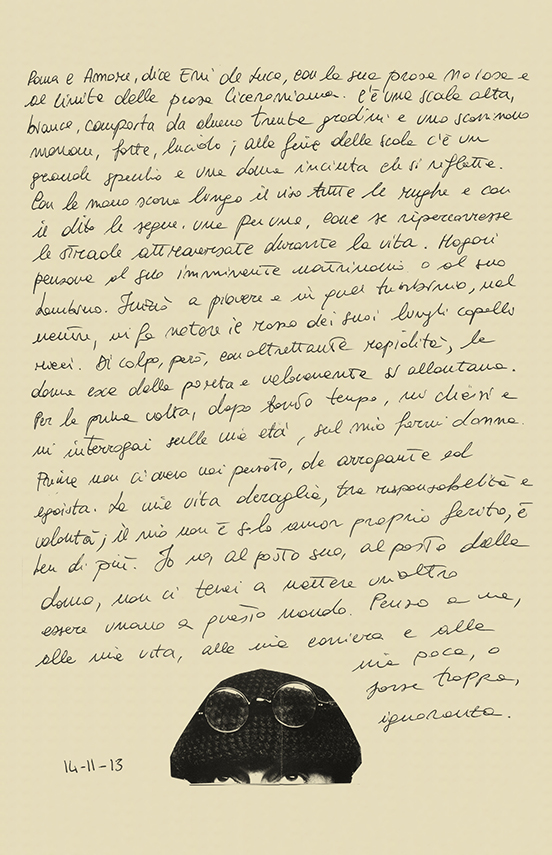 Roma è Amore, dice Erri de Luca, con la sua prosa noiosa e
al limite della prosa ciceroniana. C'è una scala alta,
bianca, composta da almeno trenta gradini e uno scorrimano
marrone, forte, lucido; alla fine della scala c'è un
grande specchio e una donna incinta che si riflette.
Con le mano scova lungo il viso tutte le rughe e con
il dito le segue. una per una, come se ripercorresse
le strade attraversate durante la vita. Magari
pensava al suo imminente matrimonio o al suo
bambino. Iniziò a piovere e in quel turbinio, nel
mentre, mi fa notare il rosso dei suoi lunghi capelli
ricci. Di colpo, però, con altrettanta rapidità, la
donna esce dalla porta e velocemente si allontana.
Per la prima volta, dopo tanto tempo, mi chiesi e
mi interrogai sulla mia età, sul mio farmi donna.
Prima non ci avevo mai pensato, da arrogante ed
egoista. La mia vita deraglia, tra responsabilità e
volontà; il mio non è solo amor proprio ferito, è
ben di più. Io no, al posto suo, al posto della
donna, non ci terrei a mettere un altro
essere umano a questo mondo. Penso a me,
alla mia vita, alla mia carriera e alla
mia poca, o
forse troppa,
ignoranza.
14-11-13